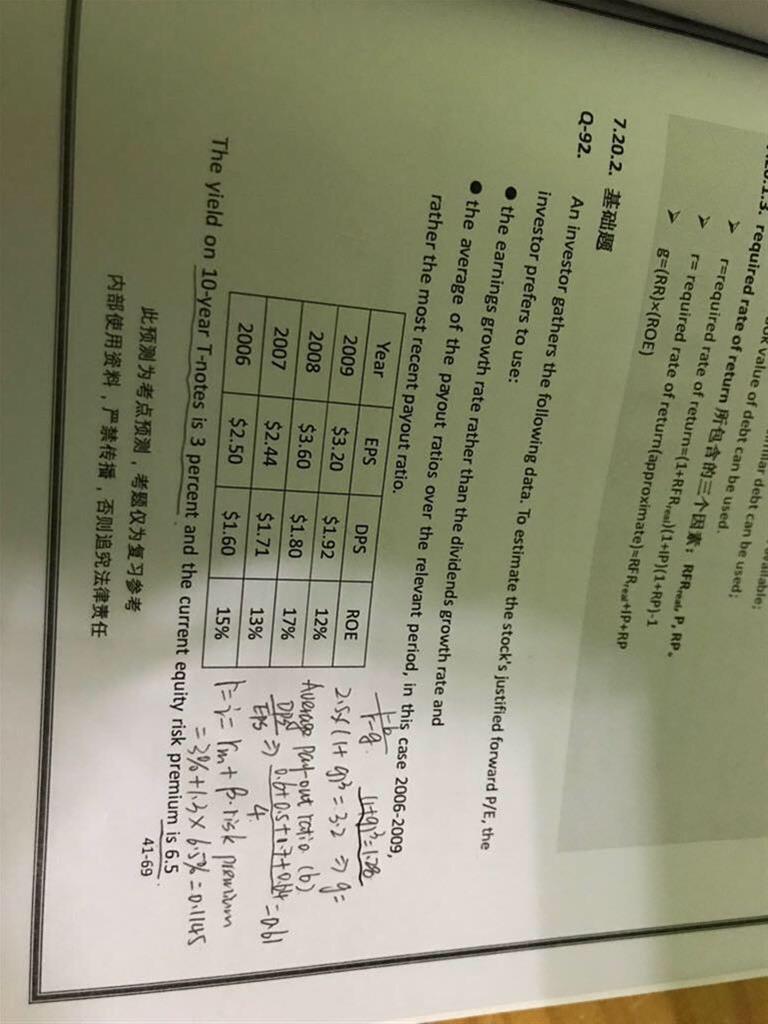 ook value of debt can be used.
required rate of return
r=required rate of return 所包含的三个因素：RFRreal, P, RP。
r= required rate of return=(1+RFRreal)(1+IP)(1+RP)-1
r= required rate of return(approximate)=RFRreal+IP+RP
g=(RR)×(ROE)
7.20.2. 基础题
Q-92. An investor gathers the following data. To estimate the stock's justified forward P/E, the
investor prefers to use:
● the earnings growth rate rather than the dividends growth rate and
● the average of the payout ratios over the relevant period, in this case 2006-2009,
rather the most recent payout ratio.
Year EPS DPS ROE
2009 $3.20 $1.92 12%
2008 $3.60 $1.80 17%
2007 $2.44 $1.71 13%
2006 $2.50 $1.60 15%
1-b
r-g
(1+g)³=1.28
2.5×(1+g)³=3.2 ⇒ g=
Average pay-out ratio (b)
DPS/EPS ⇒ 0.6+0.5+0.7+0.64 = 0.61
4
= 3%+1.3×6.5%=0.1145
The yield on 10-year T-notes is 3 percent and the current equity risk premium is 6.5
41-69
此预测为考点预测，考题仅为复习参考
内部使用资料，严禁传播，否则追究法律责任